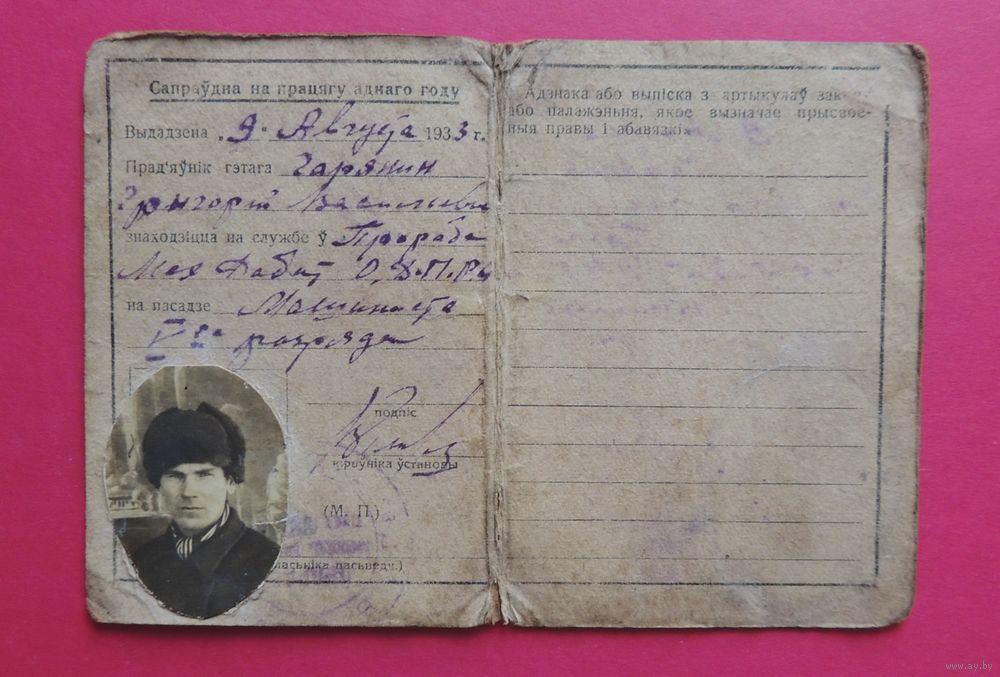 Сапраўдна на працягу аднаго году
Выдадзена „9“ Августа 1933 г.
Прад'яўнік гэтага Гарянин
Григорий Васильеви
знаходзіцца на службе ў Прораба
Мех Работ
на пасадзе Машиниста
V го разряда
подпіс
кіраўніка ўстановы
(М. П.)
ласьніка пасьведч.)
Адзнака або выпіска з артыкулаў зак
або палажэньня, якое вызначае прысвое-
ныя правы і абавязкі
www.ay.by